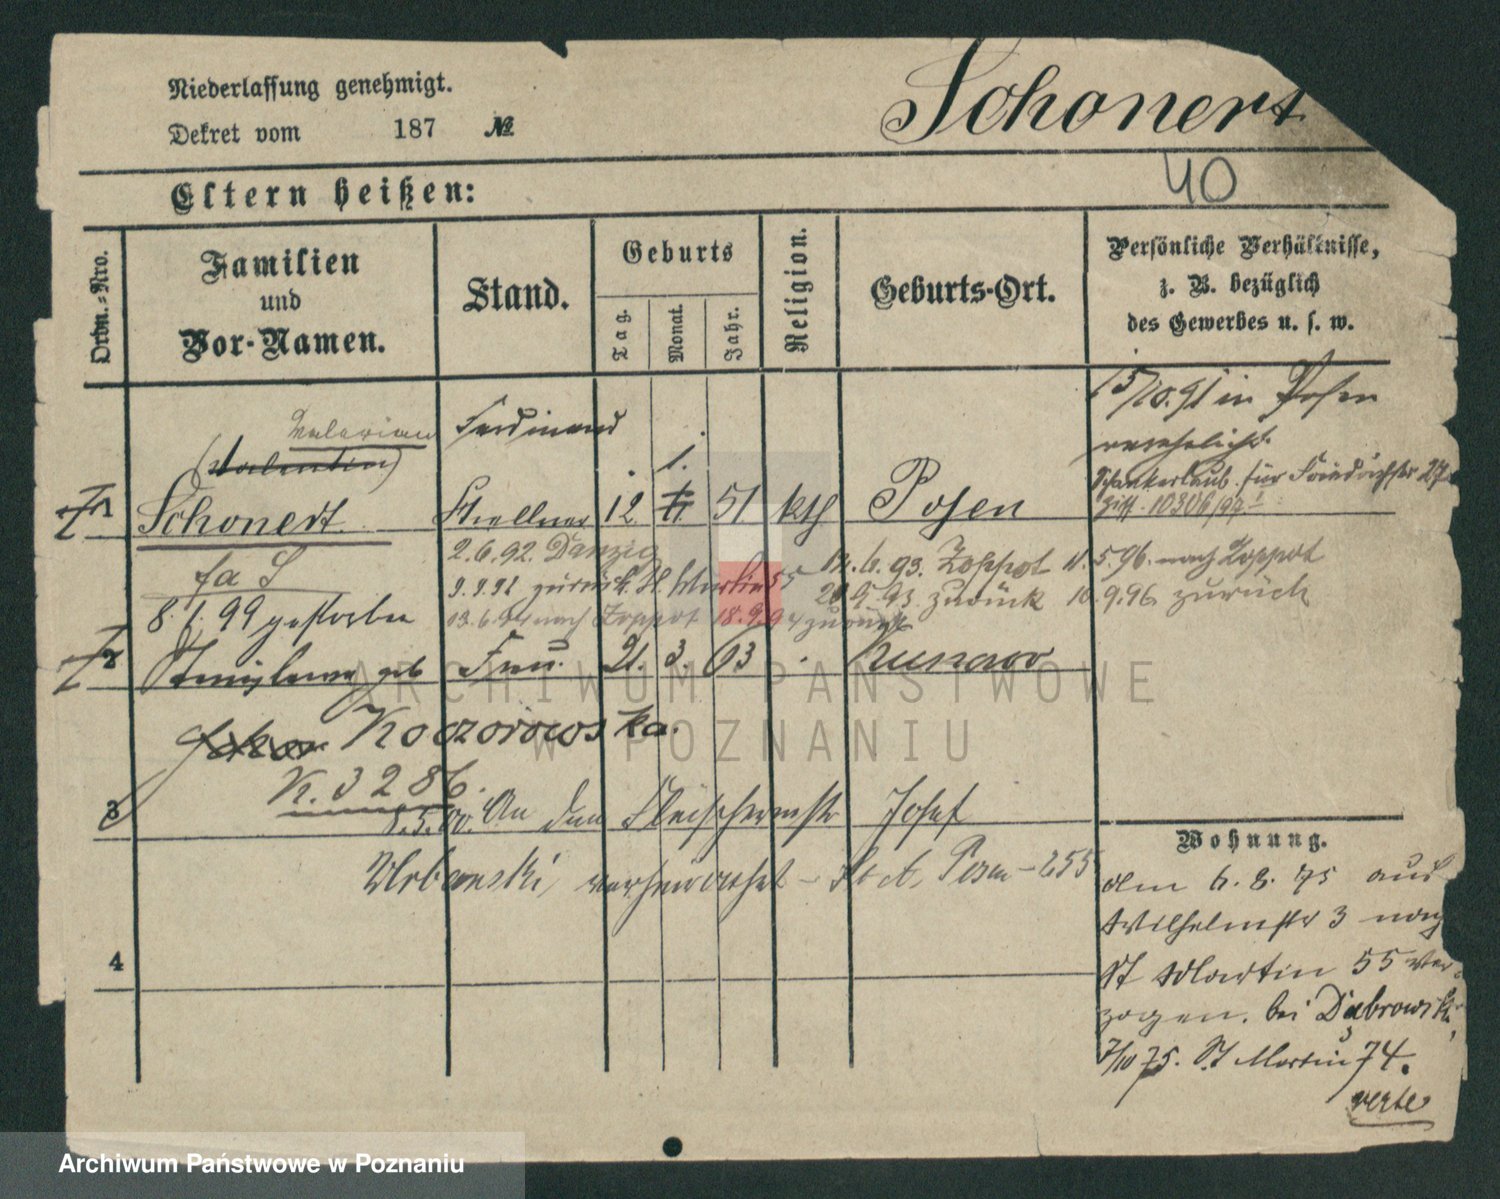 Niederlassung genehmigt.
Schonert
Dekret vom 187 №
40
Eltern heißen:
Ordn.-Nro.
Familien
und
Vor-Namen.
Stand.
Geburts
Tag.
Monat.
Jahr.
Religion.
Geburts-Ort.
Persönliche Verhältnisse,
z. B. bezüglich
des Gewerbes u. s. w.
15/10.91 in Posen
Valerian Ferdinand
verehelicht.
(Valentin) 1.
Schankerlaub. für
1 Schonert Kellner 12. 51 kth Posen
10306/97
2.6.92. Danzig
6.93. Zoppot 11.5.96. nach Zoppot
zurück St. Martin 55
93 zurück 10.9.96. zurück
8.1.99 gestorben
nach Zoppot 18.9.94 zurück
2 Stanislawa geb Frau. 21. 3. 63 Kunowo
Koczorowska.
K. 3286.
3 8.5.00. An den Fleischermstr Josef
Urbanski, verheirathet – St. A. Posen – 255
Wohnung.
Am 6.8.75 aus
Wilhelmstr 3 nach
St Martin 55 ver-
zogen. bei Dabrowski,
7/10 75. St Martin 74.
verte
4
ARCHIWUM PAŃSTWOWE
W POZNANIU
Archiwum Państwowe w Poznaniu